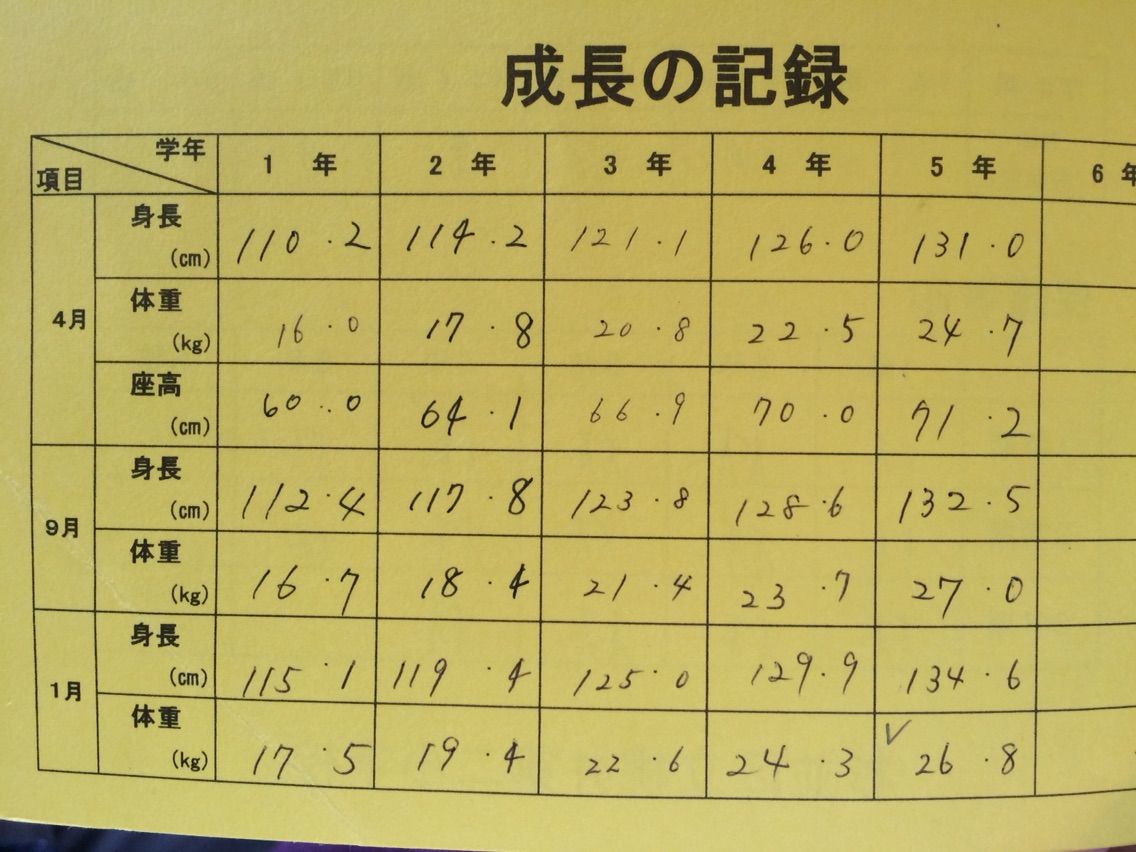 成長の記録
項目 学年 1 年 2 年 3 年 4 年 5 年 6 年
4月 身長 (cm) 110.2 114.2 121.1 126.0 131.0
体重 (kg) 16.0 17.8 20.8 22.5 24.7
座高 (cm) 60.0 64.1 66.9 70.0 71.2
9月 身長 (cm) 112.4 117.8 123.8 128.6 132.5
体重 (kg) 16.7 18.4 21.4 23.7 27.0
1月 身長 (cm) 115.1 119.4 125.0 129.9 134.6
体重 (kg) 17.5 19.4 22.6 24.3 26.8